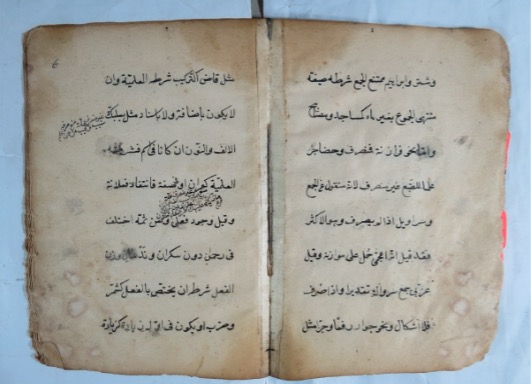 وشتر وابراهيم ممتنع الجمع شرطه صيغة
منتهى الجموع بغير هاء كمساجد ومصابيح
واما نحو فرازنة فمنصرف وحضاجر
علما للضبع غير منصرف لانه منقول عن الجمع
وسراويل اذا لم يصرف وهو الاكثر
فقد قيل اعجمي حمل على موازنه وقيل
عربي جمع سروالة تقديرا واذا صرف
فلا اشكال ونحو جوار رفعا وجرا مثل
مثل قاض التركيب شرطه العلمية وان
لا يكون باضافة ولا باسناد مثل بعلبك
الالف والنون ان كانا في اسم فشرطه
العلمية كعمران او في صفة فانتفاء فعلانة
وقيل وجود فعلى ومن ثمه اختلف
في رحمن دون سكران وندمان وزن
الفعل شرطه ان يختص بالفعل كشمر
وضرب او يكون في اوله زيادة كزيادة